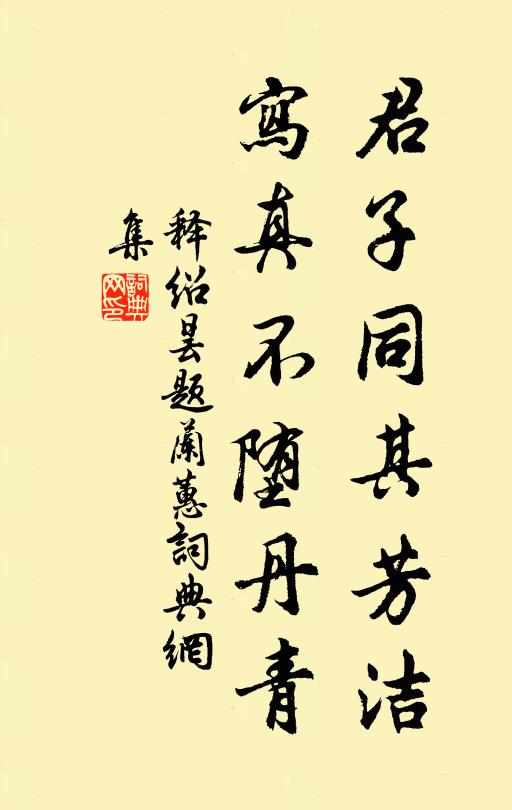 君子同其芳洁
寫真不堕丹青
释绍昙题蘭蕙詞典網
集
詞典网印